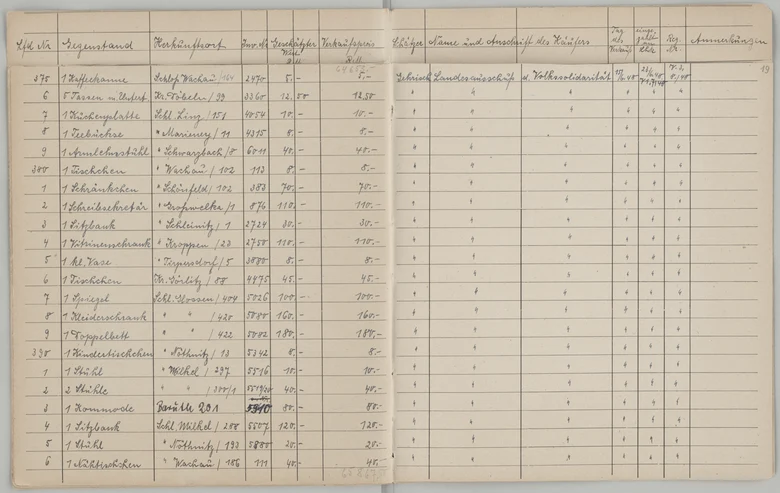 Lfd Nr Gegenstand Herkunftsort Inv. Nr Geschätzter Wert Verkaufspreis Schätzer Name und Anschrift des Käufers Tag des Verkaufs Reg. Nr. Anmerkungen
19
375 1 Kaffeekanne Schloß Wachau/164 2470 5.- 5.- Gerisch Landesausschuß d. Volkssolidarität
6 5 Tassen m. Untert. Kr. Döbeln/99 3360 12.50 12.50 " " " " " "
7 1 Kuchenplatte Schl. Linz/151 4054 10.- 10.- " " " " " "
8 1 Teebüchse " Marieney/11 4315 8.- 8.- " " " " " "
9 1 Armlehnstuhl " Schwarzbach/8 6011 40.- 40.- " " " " " "
380 1 Tischchen " Wachau/102 113 8.- 8.- " " " " " "
1 1 Schränkchen " Schönfeld/102 383 70.- 70.- " " " " " "
2 1 Schreibsekretär " Großwelka/1 874 110.- 110.- " " " " " "
3 1 Sitzbank " Schleinitz/1 2724 30.- 30.- " " " " " "
4 1 Vitrinenschrank " Kroppen/23 2750 110.- 110.- " " " " " "
5 1 kl. Vase " Oppersdorf/5 3880 8.- 8.- " " " " " "
6 1 Tischchen Kr. Görlitz/88 4475 45.- 45.- " " " " " "
7 1 Spiegel Schl. Nossen/404 5026 100.- 100.- " " " " " "
8 1 Kleiderschrank " " /420 5040 160.- 160.- " " " " " "
9 1 Doppelbett " " /422 5042 180.- 180.- " " " " " "
390 1 Kindertischchen " Nöthnitz/13 5342 8.- 8.- " " " " " "
1 1 Stuhl " Milkel/297 5516 10.- 10.- " " " " " "
2 2 Stühle " " /300/1 40.- 40.- " " " " " "
3 1 Kommode Baruth 201 80.- 80.- " " " " " "
4 1 Sitzbank Schl. Milkel/288 5507 120.- 120.- " " " " " "
5 1 Stuhl " Nöthnitz/193 5880 20.- 20.- " " " " " "
6 1 Nähtischchen " Wachau/186 111 40.- 40.- " " " " " "